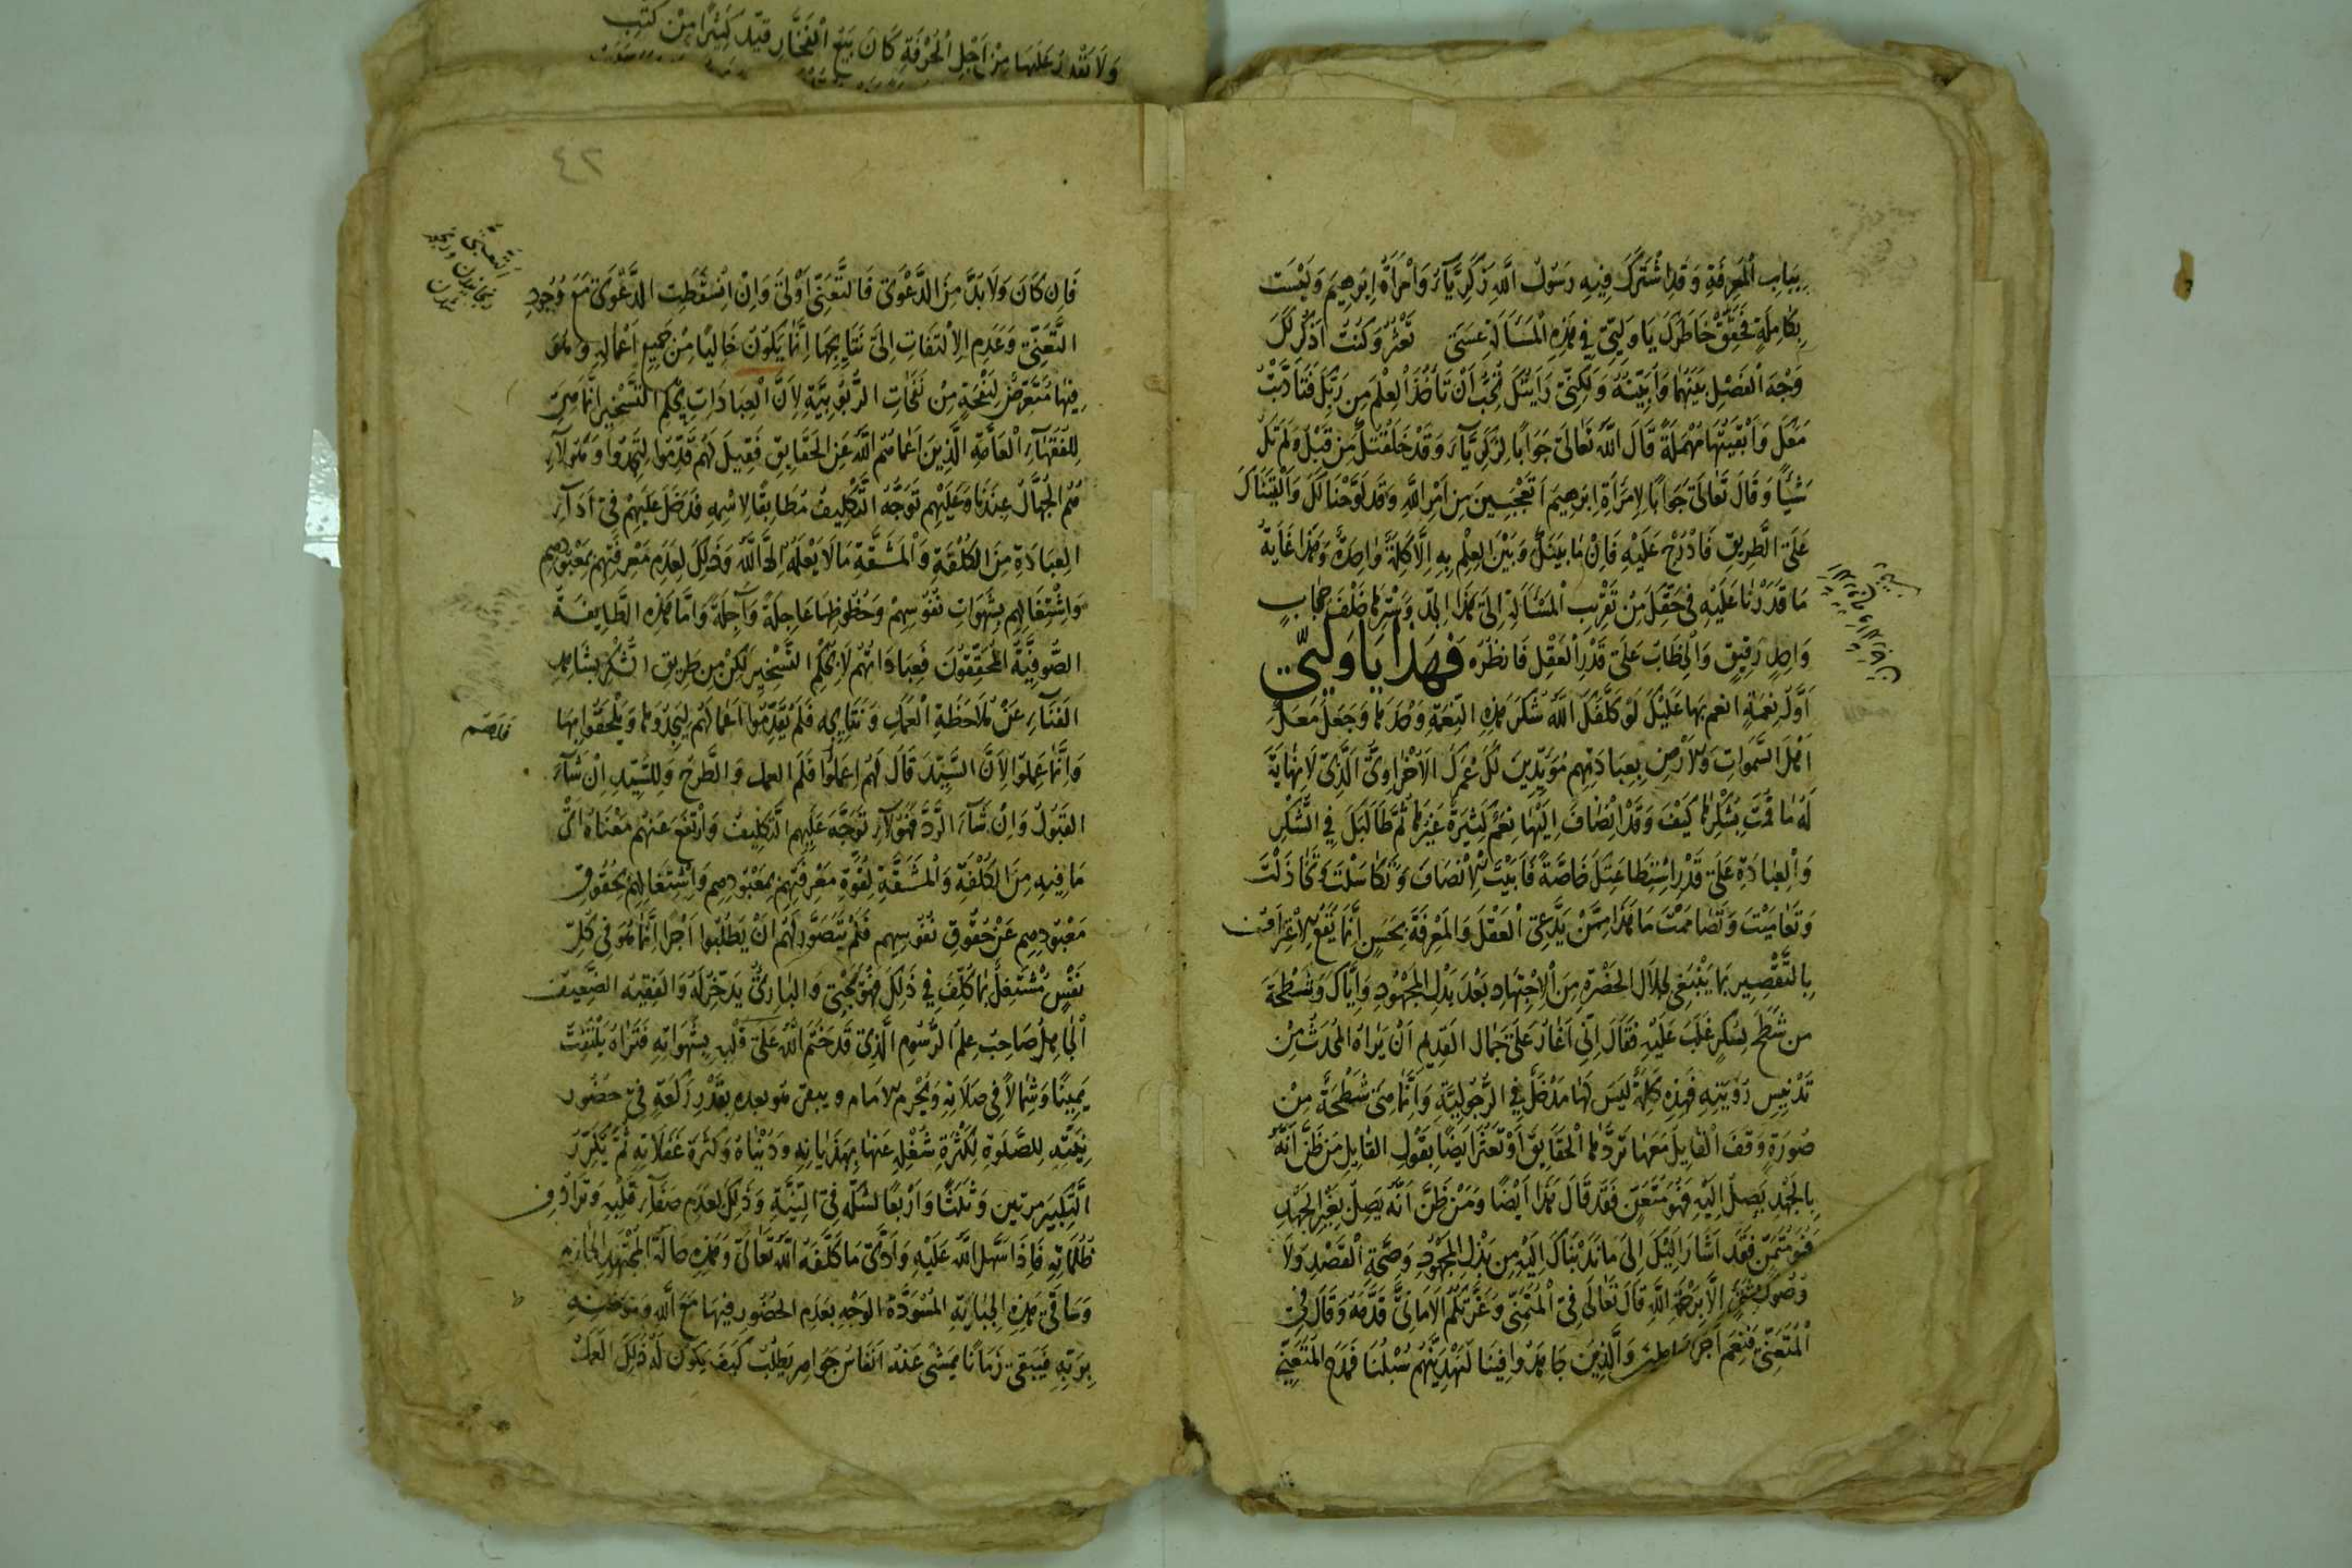 بِبَابِ الْمَعْرِفَةِ وَقَدِ اشْتَرَكَ فِيهِ رَسُولُ اللَّهِ زَكَرِيَّاءُ وَامْرَأَةُ اِبْرَهِيمَ وَلَيْسَتْ
بِكَامِلَةٍ فَحَقِّقْ خَاطِرَكَ يَا وَلِيّي فِي هَذِهِ الْمَسْأَلَةِ عَسَى تَعْثُرُ وَكُنْتُ اَذْكُرُ لَكَ
وَجْهَ الْفَصْلِ بَيْنَهُمَا وَاُبَيِّنُهُ وَلَكِنِّي رَاَيْتُكَ تُحِبُّ اَنْ تَأخُذَ الْعِلْمَ مِن رَبِّكَ فَتَاَدَّبْتُ
مَعَكَ وَاَبْقَيْتُهَا مُهْمَلَةً قَالَ اللَّهُ تَعَالَى جَوَابًا لِزَكَرِيَّاءَ وَقَدْ خَلَقْتُكَ مِن قَبْلُ وَلَمْ تَكُ
شَيْئًا وَقَالَ تَعَالَى جَوَابًا لِامْرَأَةِ اِبْرَهِيمَ اَتَعْجَبِينَ مِن اَمْرِ اللَّهِ وَقَد لَوَّحْنَا لَكَ وَاَلْقَيْنَاكَ
عَلَى الطَّرِيقِ فَادْرُجْ عَلَيْهِ فَاِنْ مَا بَيْنَكَ وَبَيْنَ الْعِلْمِ بِهِ اِلَّا كَلِمَةٌ وَاحِدَةٌ وَهَذَا غَايَةُ
مَا قَدَرْنَا عَلَيْهِ فِي حَقِّكَ مِنْ تَقْرِيبِ الْمَسْأَلَةِ اِلَى هَذَا الْحَدِّ وَسَتْرِهَا خَلْفَ حِجَابٍ
وَاحِدٍ رَقِيقٍ وَالْخِطَابُ عَلَى قَدْرِ الْعَقْلِ فَانْظُرْه فَهَذَا يَا وَلِيّي
اَوَّلُ نِعْمَةٍ انعم بِهَا عَلَيْكَ لَوْ كَلَّفَكَ اللَّهُ شُكْرَ هَذِهِ النِّعْمَةِ وَحْدَهَا وَجَعَلَ مَعَكَ
اَهْلَ السَّمَوَاتِ وَالْاَرْضِ بِعِبَادَتِهِم مُؤَيِّدِينَ لَكَ عُمْرَكَ الْاُخْرَاوِيَّ الَّذِي لَا نِهَايَةَ
لَهُ مَا قُمْتَ بِشُكْرِهَا كَيْفَ وَقَدِ انْضَافَ اِلَيْهَا نِعَمٌ كَثِيرَةٌ غَيْرُهَا ثُمَّ طَالَبَكَ فِي الشُّكْرِ
وَالْعِبَادَةِ عَلَى قَدْرِ اسْتِطَاعَتِكَ خَاصَّةً فَاَبَيْتَ الْاِنْصَافَ وَتَكَاسَلْتَ وَتَخَاذَلْتَ
وَتَعَامَيْتَ وَتَصَامَمْتَ مَا هَذَا مِمَّنْ يَدَّعِي الْعَقْلَ وَالْمَعْرِفَةَ بِحَسَنٍ اِنَّمَا يَقَعُ الْاِعْتِرَافُ
بِالتَّقْصِيرِ بِمَا يَنْبَغِي لِجَلَالِ الْحَضْرَةِ مِنَ الْاِجْتِهَادِ بَعْدَ بَذْلِ الْمَجْهُودِ وَاِيَّاكَ وَشَطْحَةَ
من شَطَحَ لِسُكْرٍ غَلَبَ عَلَيْهِ فَقَالَ اِنِّي اَغَارُ عَلَى جَمَالِ الْقَدِيمِ اَنْ يَرَاهُ الْمُحْدَثُ مِنْ
تَدْنِيسِ رُؤْيَتِهِ فَهَذِهِ كَلِمَةٌ لَيْسَ لَهَا مَدْخَلٌ فِي الرُّجُولِيَّةِ وَاِنَّمَا هِيَ شَطْحَةٌ مِنْ
صُورَةٍ وَقَفَ الْقَايِلُ مَعَهَا تَرُدُّهَا الْحَقَايِقُ اَوْ تَعْثُرُ اَيْضًا بِقَوْلِ الْقَايِلِ مَن ظَنَّ اَنَّهُ
بِالْجُهْدِ يَصِلُ اِلَيْهِ فَهُوَ مُتَعَنٍّ فَقَد قَالَ هَذَا اَيْضًا وَمَنْ ظَنَّ اَنَّهُ يَصِلُ بِغَيْرِ الْجُهْدِ
فَهُوَ مُتَمَنٍّ فَقَد اَشَارَ اِلَيْكَ اِلَى مَا نَدَبْنَاكَ اِلَيْهِ مِن بَذْلِ الْمَجْهُودِ وَصِحَّةِ الْقَصْدِ وَلَا
وُصُولَ اِلَّا بِرَحْمَةِ اللَّهِ قَالَ تَعَالَى فِي الْمُتَمَنِّي وَغَرَّتْكُمُ الْاَمَانِيُّ فَذَمَّهُ وَقَالَ فِي
الْمُتَعَنِّي فَنِعْمَ اَجْرُ وَالَّذِينَ جَاهَدُوا فِينَا لَنَهْدِيَنَّهُمْ سُبُلَنَا فَمَدَحَ الْمُتَعَنِّي
وَلَا نَقْدِرُ عَلَيْهَا مِنْ اَجْلِ الْحُرْفَةِ كَانَ يَبِيعُ الْفَخَّارَ قَيَّدَ كَثِيرًا مِنْ كُتُبِ
٤٢
فَاِن كَانَ وَلَا بُدَّ مِنَ الدَّعْوَى فَالتَّعَنِّي اَوْلَى وَاِنْ اُسْقِطَتِ الدَّعْوَى مَعَ وُجُودِ
التَّعَنِّي وَعَدَمِ الْاِلْتِفَاتِ اِلَى نَتَايِجِهَا اِنَّمَا يَكُونُ خَالِيًا مِنْ جَمِيعِ اَعْمَالِهِ وَهُوَ
فِيهَا مُتَعَرِّضٌ لِنَفْحَةٍ مِنْ نَفَحَاتِ الرُّبُوبِيَّةِ لِاَنَّ الْعِبَادَاتِ بِحُكْمِ التَّسْخِيرِ اِنَّمَا هِيَ
لِلْفُقَهَاءِ الْعَامَّةِ الَّذِينَ اَعْمَاهُمُ اللَّهُ عَنِ الْحَقَايِقِ فَقِيلَ لَهُمْ قَدِّمُوا لِتَجِدُوا وَهَؤُلَاءِ
هُمُ الْجُهَّالُ عِنْدَنَا وَعَلَيْهِم تَوَجَّهَ التَّكْلِيفُ مُطَابِقًا لِاسْمِهِ فَدَخَلَ عَلَيْهِمْ فِي اَدَاءِ
الْعِبَادَةِ مِنَ الْكُلْفَةِ وَالْمَشَقَّةِ مَا لَا يَعْلَمُهُ اِلَّا اللَّهُ وَذَلِكَ لِعَدَمِ مَعْرِفَتِهِمْ بِمَعْبُودِهِم
وَاشْتِغَالِهِم بِشَهَوَاتِ نُفُوسِهِمْ وَحُظُوظِهَا عَاجِلَةً وَآجِلَةً وَاَمَّا هَذِهِ الطَّايِفَةُ
الصُّوفِيَّةُ الْمُحَقِّقُونَ فَعِبَادَاتُهُمْ لَا بِحُكْمِ التَّسْخِيرِ لَكِنْ مِن طَرِيقِ الشُّكْرِ بِشَاهِدِ
الْفَنَاءِ عَنْ مُلَاحَظَةِ الْعَمَلِ وَنَتَايِجِهِ فَلَمْ يُقَدِّمُوا اَعْمَالَهُمْ لِيَجِدُوهَا وَيَلْحَقُوا بِهَا
وَاِنَّمَا عَمِلُوا لِاَنَّ السَّيِّدَ قَالَ لَهُمْ اِعْمَلُوا فَلَهُم العمل وَالطَّرْحُ وَلِلسَّيِّدِ اِنْ شَاءَ
الْقَبُولُ وَاِنْ شَاءَ الرَّدُّ فَهَؤُلَاءِ تَوَجَّهَ عَلَيْهِم التَّكْلِيفُ وَارْتَفَعَ عَنْهُمْ مَعْنَاهُ اَيْ
مَا فِيهِ مِنَ الْكُلْفَةِ وَالْمَشَقَّةِ لِقُوَّةِ مَعْرِفَتِهِمْ بِمَعْبُودِهِم وَاشْتِغَالِهِمْ بِحُقُوقِ
مَعْبُودِهِم عَنْ حُقُوقِ نُفُوسِهِم فَلَمْ يُتَصَوَّرْ لَهُمْ اَنْ يَطْلُبُوا اَجْرًا اِنَّمَا هُوَ فِي كُلِّ
نَفَسٍ مُشْتَغِلٌ بِمَا كُلِّفَ فِي ذَلِكَ فَهُوَ يَجْنِي وَالْبَارِئُ يَدَّخِرُ لَهُ وَالْفَقِيهُ الضَّعِيفُ
الْجَاهِلُ صَاحِبُ عِلْمِ الرُّسُومِ الَّذِي قَد خَتَمَ اللَّهُ عَلَى قَلْبِهِ بِشَهَوَاتِهِ فَتَرَاهُ يَلْتَفِتُ
يَمِينًا وَشِمَالًا فِي صَلَاتِهِ وَيُحْرِمُ الْاِمَام ويبقى هو بعده بِقَدْرِ رَكْعَةٍ فِي حُضُورِ
نِيَّتِهِ لِلصَّلَوةِ لِكَثْرَةِ شُغْلِهِ عَنْهَا بِهَذَيَانِهِ وَدُنْيَاهُ وَكَثْرَةِ غَفَلَاتِهِ ثُمَّ يُكَرِّرُ
التَّكْبِيرَ مرتين وَثَلَثًا وَاَرْبَعًا لِشَكِّهِ فِي النِّيَّةِ وَذَلِكَ لِعَدَمِ صَفَاءِ قَلْبِهِ وَتَرَادُفِ
ظُلُمَاتِهِ فَاِذَا سَهَّلَ اللَّهُ عَلَيْهِ وَاَدَّى مَا كَلَّفَهُ اللَّهُ تَعَالَى وَهَذِهِ حَالَةُ الْمُجْتَهِدِ الْحَازِمِ
وَسَاقَ هَذِهِ الْجُبَارِيَّةِ الْمُسْوَدَّةَ الْوَجْهِ بِعَدَمِ الْحُضُورِ فِيهَا مَعَ اللَّهِ
بِرَبِّهِ فَيَبْقَى زَمَانًا يَمْشِي عِنْدَ اَنْفَاسُ جَوَاهِرَ يَطْلُبُ كَيْفَ يَكُون لَهُ ذَلِكَ الْعَمَلُ